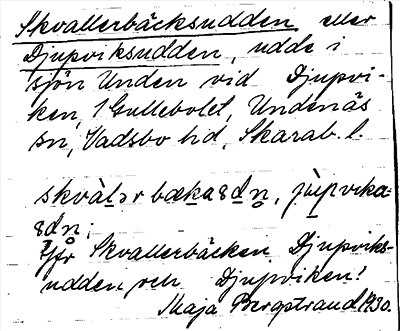 Skvallerbäcksudden eller
Djupviksudden, udde i
sjön Unden vid Djupvi-
ken, 1 Gullebolet, Undenäs
sn, Vadsbo hd, Skarab. l.
skvàlər bækasdn, jùpvika-
sdn;
Jfr Skvallerbäcken, Djupviks-
udden och Djupviken!
Maja Bergstrand 1930.